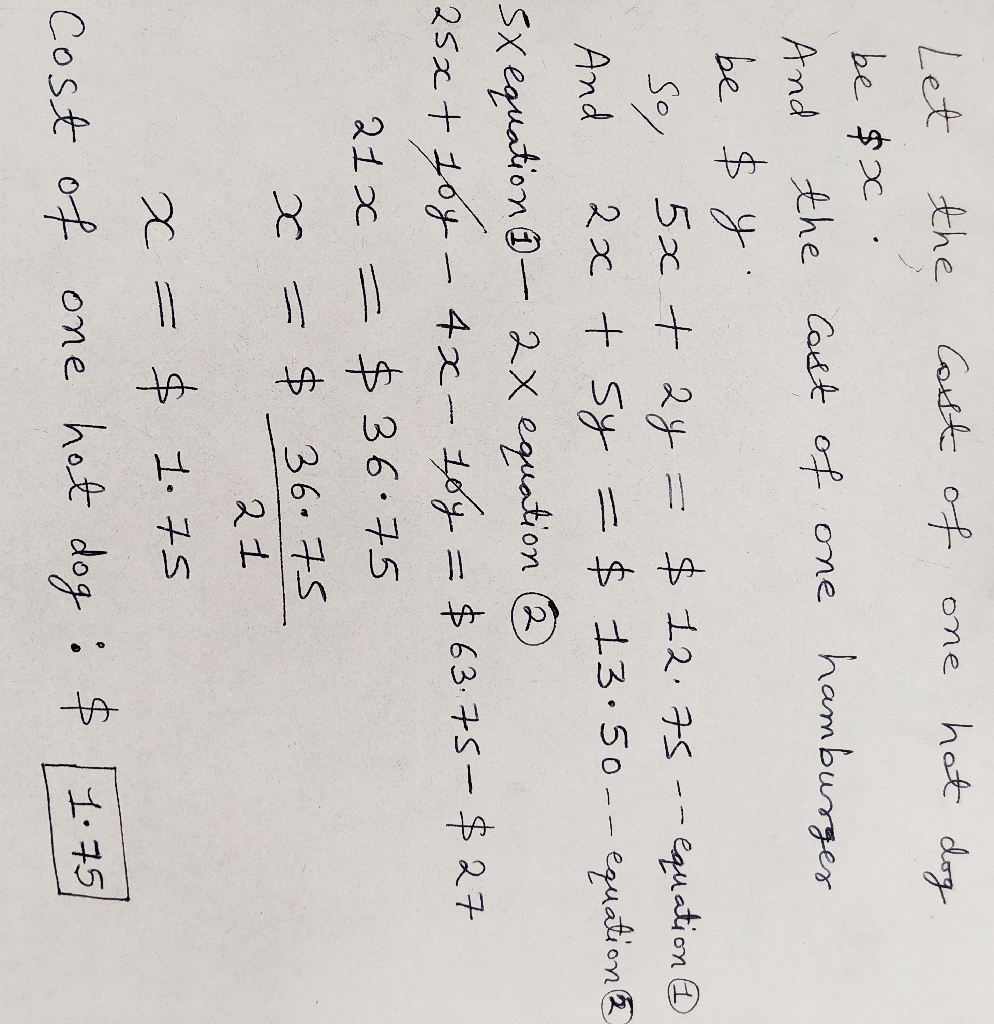 Let the cost of one hot dog
be $x.
And the cost of one hamburger
be $y.
So, 5x + 2y = $12.75 -- equation ①
And 2x + 5y = $13.50 -- equation ②
5X equation ① - 2X equation ②
25x + 10y - 4x - 10y = $63.75 - $27
21x = $36.75
x = $ 36.75
21
x = $ 1.75
Cost of one hot dog : $ 1.75